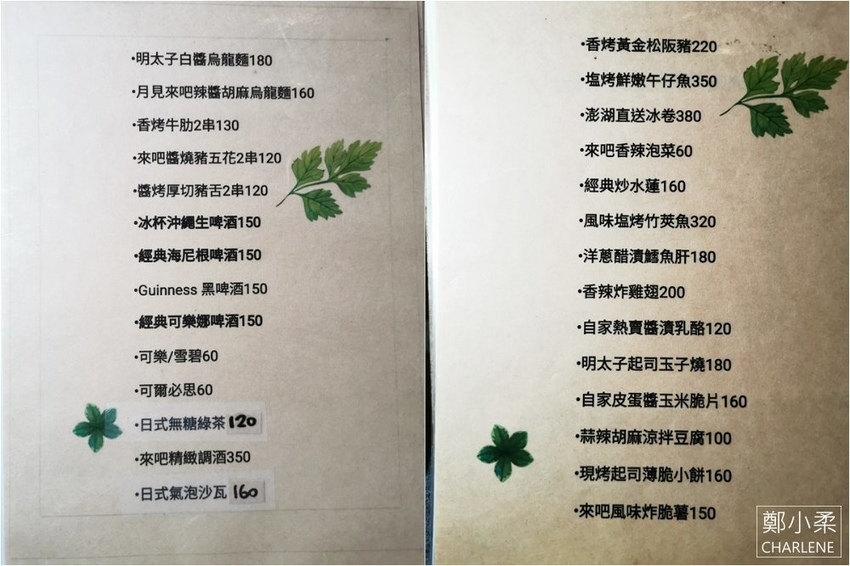 •明太子白醬烏龍麵180
•月見來吧辣醬胡麻烏龍麵160
•香烤牛肋2串130
•來吧醬燒豬五花2串120
•醬烤厚切豬舌2串120
•冰杯沖繩生啤酒150
•經典海尼根啤酒150
•Guinness 黑啤酒150
•經典可樂娜啤酒150
•可樂/雪碧60
•可爾必思60
•日式無糖綠茶120
•來吧精緻調酒350
•日式氣泡沙瓦160
•香烤黃金松阪豬220
•塩烤鮮嫩午仔魚350
•澎湖直送冰卷380
•來吧香辣泡菜60
•經典炒水蓮160
•風味塩烤竹筴魚320
•洋蔥醋漬鱈魚肝180
•香辣炸雞翅200
•自家熱賣醬漬乳酪120
•明太子起司玉子燒180
•自家皮蛋醬玉米脆片160
•蒜辣胡麻涼拌豆腐100
•現烤起司薄脆小餅160
•來吧風味炸脆薯150
鄭小柔
CHARLENE